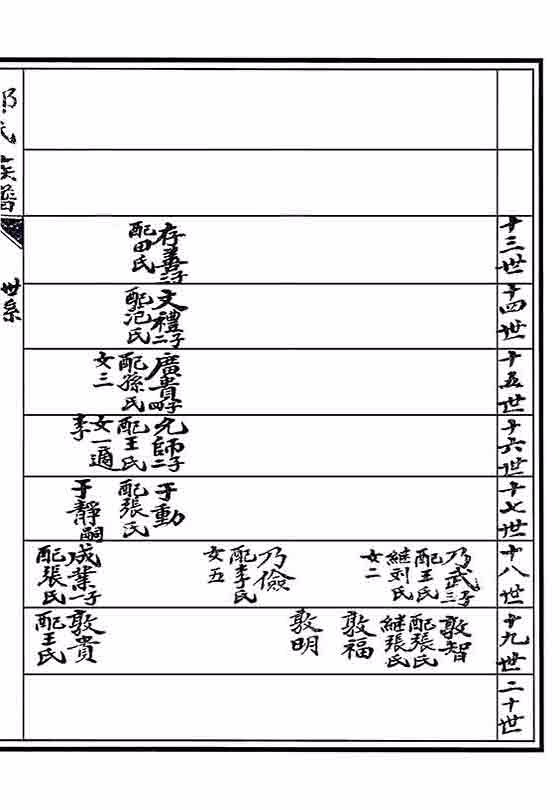 十三世
存善
配田氏
十四世
文禮二子
配氾氏
十五世
廣貴四子
配孫氏
女三
十六世
允師二子
配王氏
女一適
李
十七世
于動
配張氏
于靜嗣
十八世
乃武三子
配王氏
繼刘氏
女二
乃儉
配李氏
女五
成業一子
配張氏
十九世
敦智
配張氏
繼張氏
敦福
敦明
敦貴
配王氏
二十世
氏族譜
世系